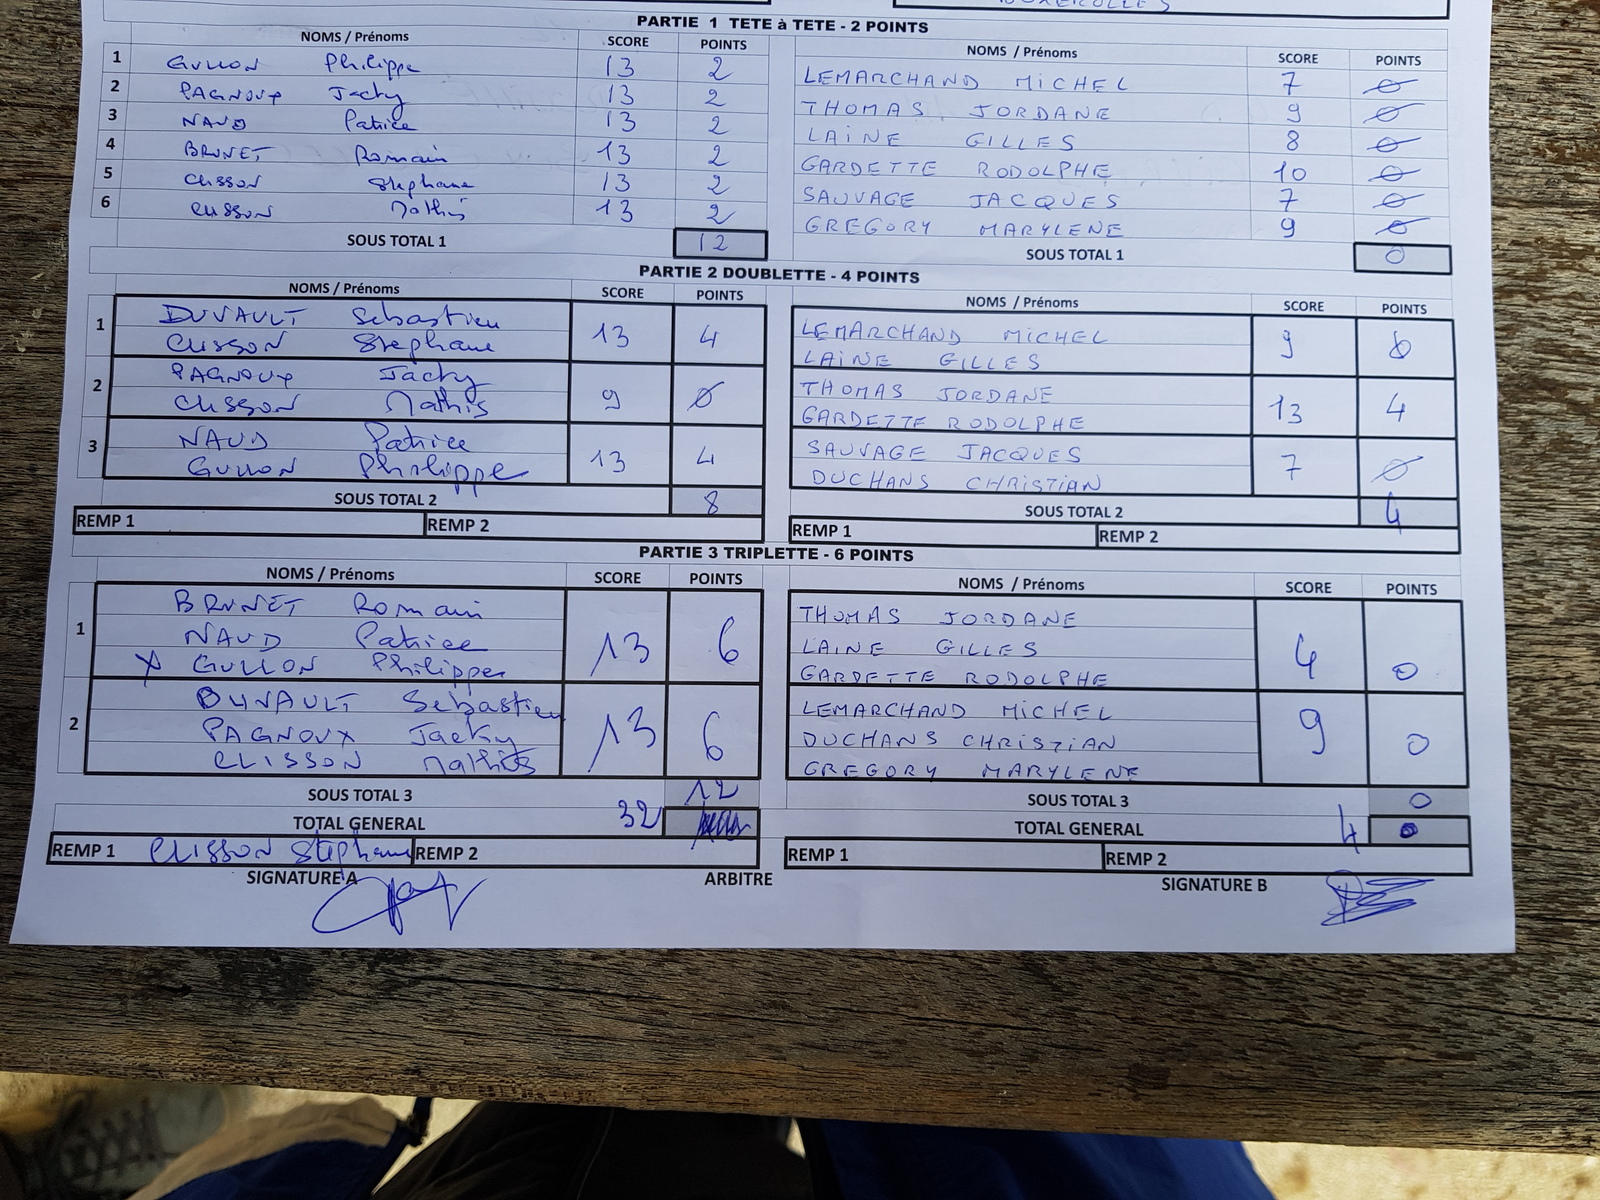 PARTIE 1 TETE à TETE - 2 POINTS
NOMS / Prénoms SCORE POINTS NOMS / Prénoms SCORE POINTS
1 GUILLON Philippe 13 2 LEMARCHAND MICHEL 7 0
2 PAGNOUX Jacky 13 2 THOMAS JORDANE 9 0
3 NAUD Patrice 13 2 LAINE GILLES 8 0
4 BRUNET Romain 13 2 GARDETTE RODOLPHE 10 0
5 CLISSON Stephane 13 2 SAUVAGE JACQUES 7 0
6 CLISSON Mathis 13 2 GREGORY MARYLENE 9 0
SOUS TOTAL 1 12 SOUS TOTAL 1 0
PARTIE 2 DOUBLETTE - 4 POINTS
NOMS / Prénoms SCORE POINTS NOMS / Prénoms SCORE POINTS
1 DUVAULT Sebastien 13 4 LEMARCHAND MICHEL 9 0
CLISSON Stephane LAINE GILLES
2 PAGNOUX Jacky 9 0 THOMAS JORDANE 13 4
CLISSON Mathis GARDETTE RODOLPHE
3 NAUD Patrice 13 4 SAUVAGE JACQUES 7 0
GUILLON Philippe DUCHANS CHRISTIAN
SOUS TOTAL 2 8 SOUS TOTAL 2 4
REMP 1 REMP 2 REMP 1 REMP 2
PARTIE 3 TRIPLETTE - 6 POINTS
NOMS / Prénoms SCORE POINTS NOMS / Prénoms SCORE POINTS
1 BRUNET Romain 13 6 THOMAS JORDANE 4 0
NAUD Patrice LAINE GILLES
X GUILLON Philippe GARDETTE RODOLPHE
2 DUVAULT Sebastien 13 6 LEMARCHAND MICHEL 9 0
PAGNOUX Jacky DUCHANS CHRISTIAN
CLISSON Mathis GREGORY MARYLENE
SOUS TOTAL 3 12 SOUS TOTAL 3 0
TOTAL GENERAL 32 TOTAL GENERAL 4
REMP 1 CLISSON Stephane REMP 2 REMP 1 REMP 2
SIGNATURE A ARBITRE SIGNATURE B